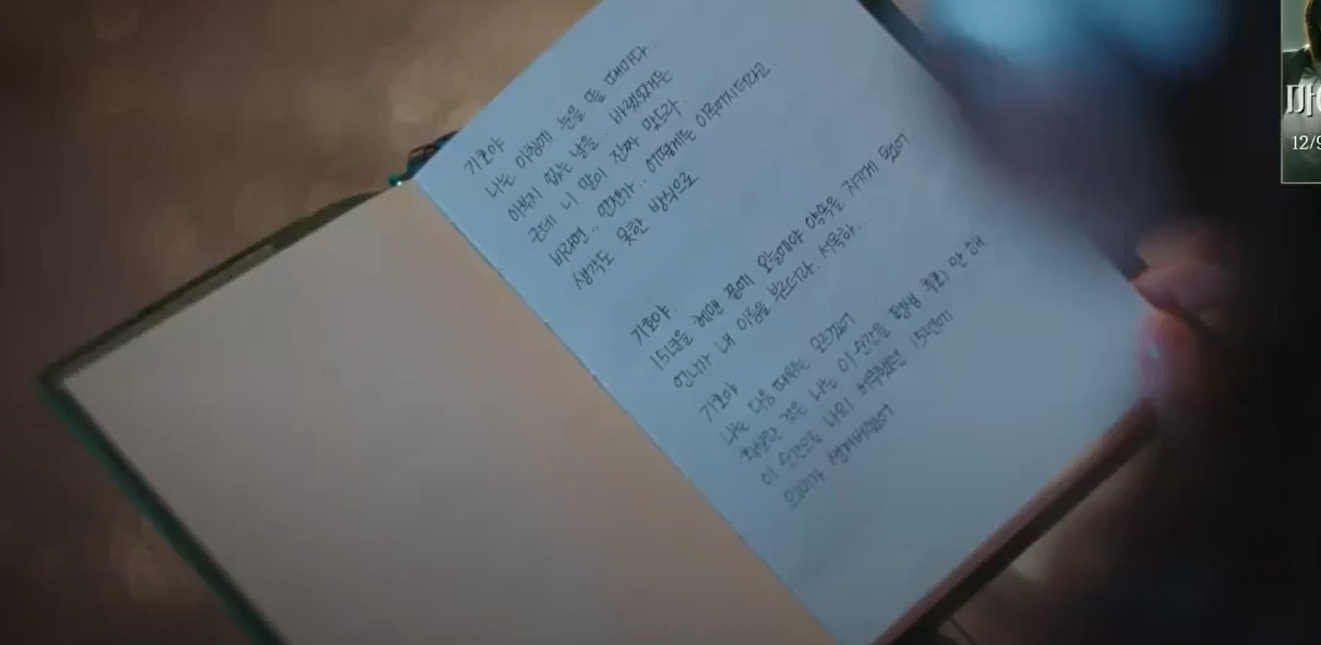 기호야
나는 아침에 눈을 뜰 때마다..
이루지 없는 날을.. 바랬었는데
근데 니 말이 진짜 맞더라.
바라면.. 언젠가.. 어떻게든 이루어지더라고.
생각도 못한 방식으로
기호야.
15년을 헤맨 끝에 오늘에야 약속을 지키게 됐어
언니가 내 이름을 부르더라. 서목하..
기호야.
나는 다음 따위는 모르겠어
확실한 것은 나는 이 순간을 평생 후회 안 해
이 순간으로 나의 허무했던 15년에
의미가 생겨버렸어
12/9